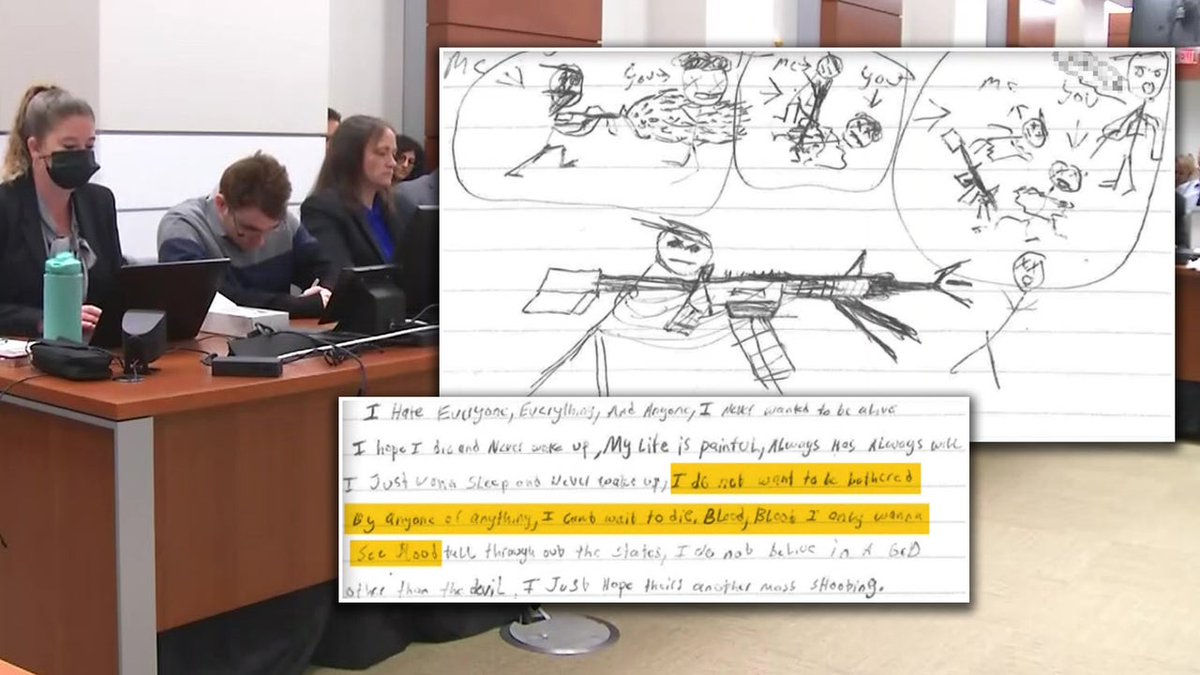 Me You Me You Me You
I Hate Everyone, Everything, And Anyone, I Never wanted to be alive
I hope I die and Never wake up, My Life is painful, Always Has Always will
I Just wanna Sleep and Never wake up, I do not want to be bothered
By anyone of anything, I cant wait to die, Blood, Blood I only wanna
See Blood fall through out the States, I do not belive in A GoD
other than the devil, I Just Hope theirs another mass Shooting.